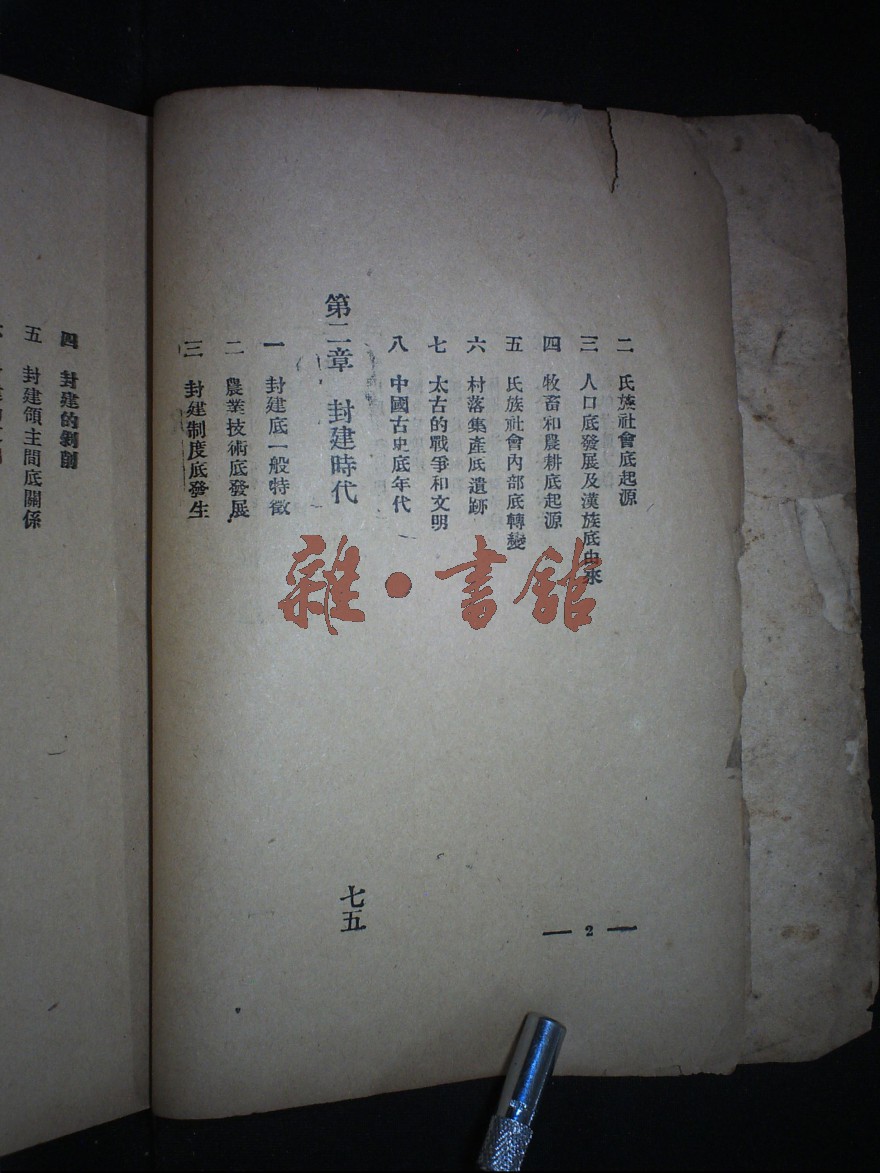 二 氏族社會底起源
三 人口底發展及漢族底由來
四 牧畜和農耕底起源
五 氏族社會內部底轉變
六 村落集產底遺跡
七 太古的戰爭和文明
八 中國古史底年代
第二章 封建時代 七五
一 封建底一般特徵
二 農業技術底發展
三 封建制度底發生
— 2 —
四 封建的剝削
五 封建領主間底關係
雜·書館